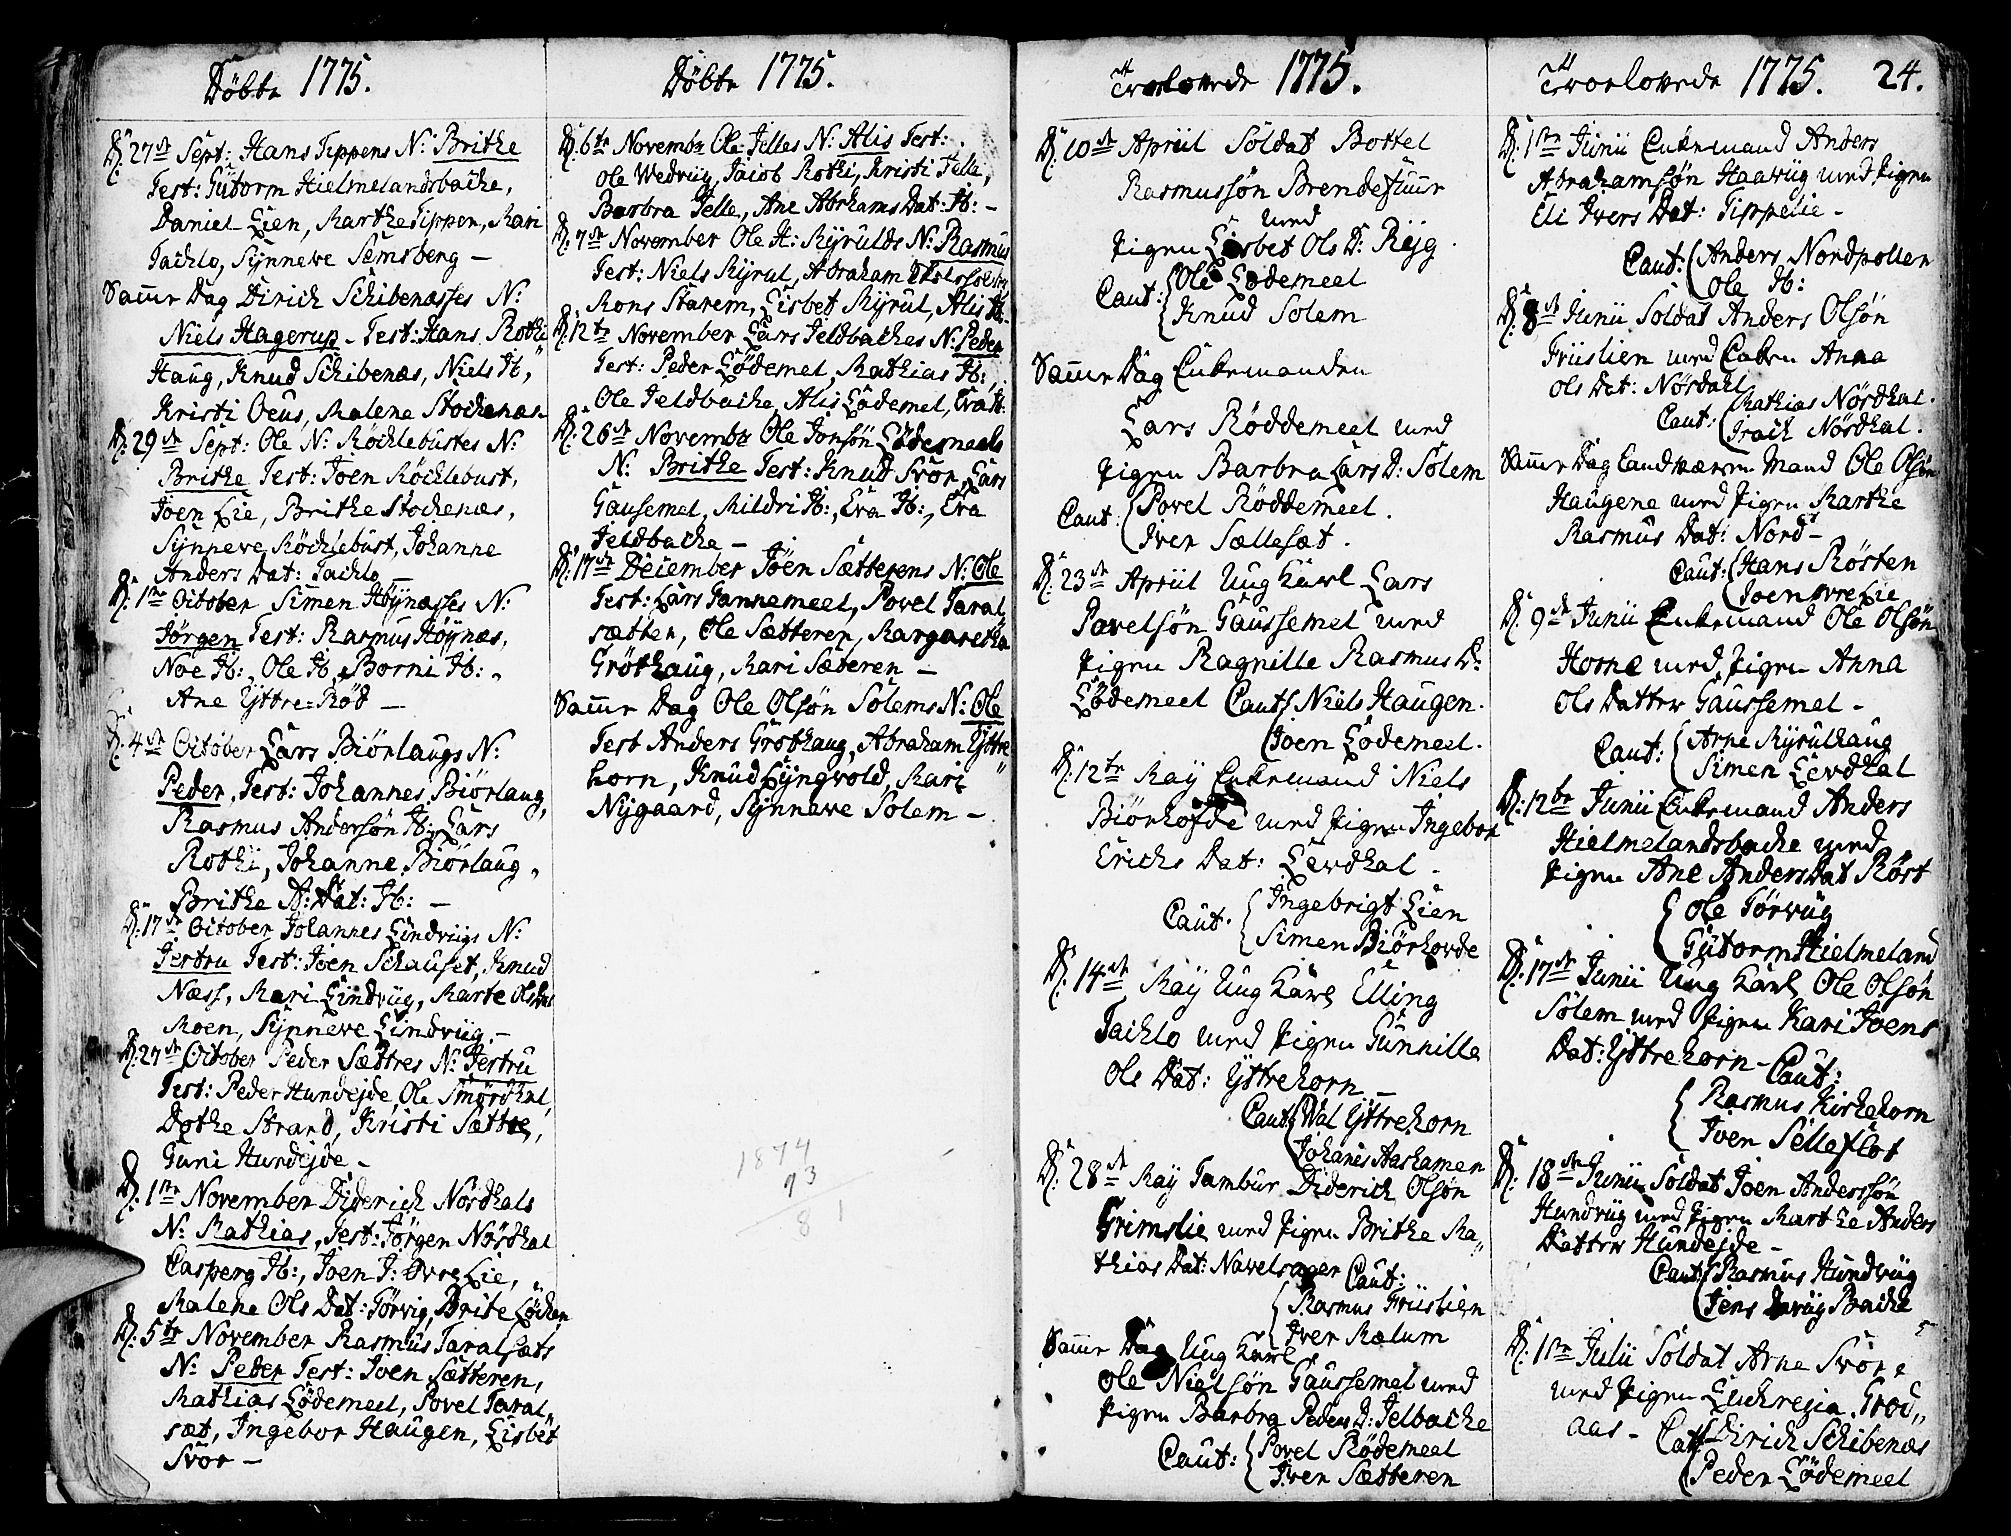 Döbte 1775.
D: 27de Sept: Hans Tippens N: Brithe
Test: Gutorm Hielmelandsbache,
Daniel Lien, Marthe Tippen, Mari
Tachlo, Synneve Semsberg —
Samme Dag Dirich Schibenæsses N:
Niels Hagerup - Test: Hans Rothi
Haug, Knud Schibenæs, Niels Ib,
Kristi Oeüs, Malene Stochenæs
D: 29de Sept: Ole N: Röchlebustes N:
Brithe Test: Joen Röchlebust,
Joen Lie, Brithe Stochenæs,
Synneve Röchlebust, Johanne
Anders Dat: Tachlo —
D: 1ste October Simen Höÿnæsses N:
Jörgen Test: Rasmus Höÿnæs,
Noe Ib:, Ole Ib, Borni Ib:,
Ane Yttre-Röd —
D: 4de October Lars Biörlaugs N:
Peder, Test: Johannes Biörlaug,
Rasmus Andersön Ib: Lars
Rothi, Johanne Biörlaug,
Brithe A: Dat: Ib: —
D: 17de October Johannes Lindviigs N:
Jertru Test: Joen Schauset, Knud
Næss, Mari Lindviig, Marte Ols Dat
Moen, Synneve Lindviig. —
D: 27de October Peder Sættres N: Jertru
Test: Peder Hundejde, Ole Smördhal,
Dothe Strand, Kristi Sættre,
Guni Hundejde —
D: 1ste November Diderich Nördhals
N: Mathias, Test: Jörgen Nördhal
Casperg Ib:, Joen J: Øvre Lie,
Malene Ols Dat: Törvig, Brite Löchen
D: 5te November Rasmus Taralsæts
N: Peder Test: Joen Sætteren,
Mathias Lödemeel, Povel Taral
sæt, Ingebor Haugen, Lisbet
Svor —
Döbte 1775.
D: 6te Novembr Ole Jelles N: Alis Test:
Ole Wedviig, Jacob Rothi, Kristi Jelle,
Barbra Jelle, Ane Abrhams Dat: Ib: —
D: 7de November Ole H: Myrulds N: Rasmus
Test: Niels Myrul, Abraham
Mons Starem, Lisbet Myrul, Alis Ib:
D: 12te November Lars Jeldbaches N: Peder
Test: Peder Lödemel, Mathias Ib:,
Ole Jeldbache, Alis Lödemel, Eva Ib:
D: 26de Novembr Ole Jonsön Lödemeels
N: Brithe Test: Knud Svor, Lars
Gausemel, Mildri Ib:, Eva Ib:, Eva
Jeldbache —
D: 17de December Joen Sætterens N: Ole
Test: Lars Tannemeel, Povel Taral
sætter, Ole Sætteren, Margaretha
Gröthaug, Mari Sæteren —
Samme Dag Ole Olsön Solems N: Ole
Test Anders Gröthaug, Abraham Yttre
horn, Knud Lyngvold, Mari
Nygaard, Synnewe Solem —
1874
73
8 1
Troelovede 1775.
D: 10de Apriil Soldat Bottel
Rasmussön Brendefuur
med
Pigen Lisbet Ols D: Ryg
Caut: Ole Lodemeel
Knud Solem
Samme Dag Enkemanden
Lars Röddemeel med
Pigen Barbra Lars D: Solem
Caut: Povel Röddemeel.
Iver Sællesæt.
D: 23de Apriil Ung Karl Lars
Povelsön Gaussemel med
Pigen Ragnille Rasmus D:
Lödemeel Caut Niels Haugen.
Joen Lodemeel.
D: 12te May Enkemand Niels
Biörhofde med Pigen Ingebor
Erichs Dat: Lerdhal.
Caut. Ingebrigt Lien
Simen Biörhovde
D: 14de May Ung Karl Elling
Tachlo med Pigen Gunnille
Ols Dat: Yttrehorn —
Caut Wal Yttrehorn
Johanes Aashamer
D: 28de May Tambur Diderich Olsön
Grimslie med Pigen Brithe Ma„
thias Dat: Navelsager Caut:
Rasmus Friislien
Iver Mælum
Samme Dag Ung Karl
Ole Nielsön Gaussemel med
Pigen Barbra Peders D: Jelbache
Caut: Povel Rödemeel
Iver Sætteren
Troelovede 1775. 24.
D: 1ste Junii Enkemand Anders
Abrahamsön Haaviig med Pigen
Eli Ivers Dat: Tippelie —
Caut: Anders Nordpollen
Ole Ib:
D: 8de Junii Soldat Anders Olsön
Friislien med Enken Anna
Ols Dat: Nördahl
Caut: Mathias Nördhal.
Irach Nördhal.
Samme Dag Landværn Mand Ole Olsön
Haugene med Pigen Marthe
Rasmus Dat: Nord —
Caut: Hans Rösten
Joen øvre Lie
D: 9de Junii Enkemand Ole Olsön
Horne med Pigen Anna
Ols Datter Gaussemel —
Caut: Arne Myrulhaug
Simen Lerdhal
D: 12te Junii Enkemand Anders
Hielmelandsbache med
Pigen Ane Anders Dat Röst
Ole Törviig
Gutorm Hielmeland
D: 17de Junii Ung Karl Ole Olsön
Solem med Pigen Kari Joens
Dat: Yttrehorn — Caut:
Rasmus Kirkehorn
IverSelleflot
D: 18de Junii Soldat Joen Anderssön
Hundviig med Pigen Marthe Anders
Datter Hundejde —
Caut: Rasmus Hundviig
Jens Daviig Bache
D: 1ste Julii Soldat Arne Svore
med Pigen Luchregia Grod„
aas — Caut Dirich Schibenæs
Peder Lödemeel